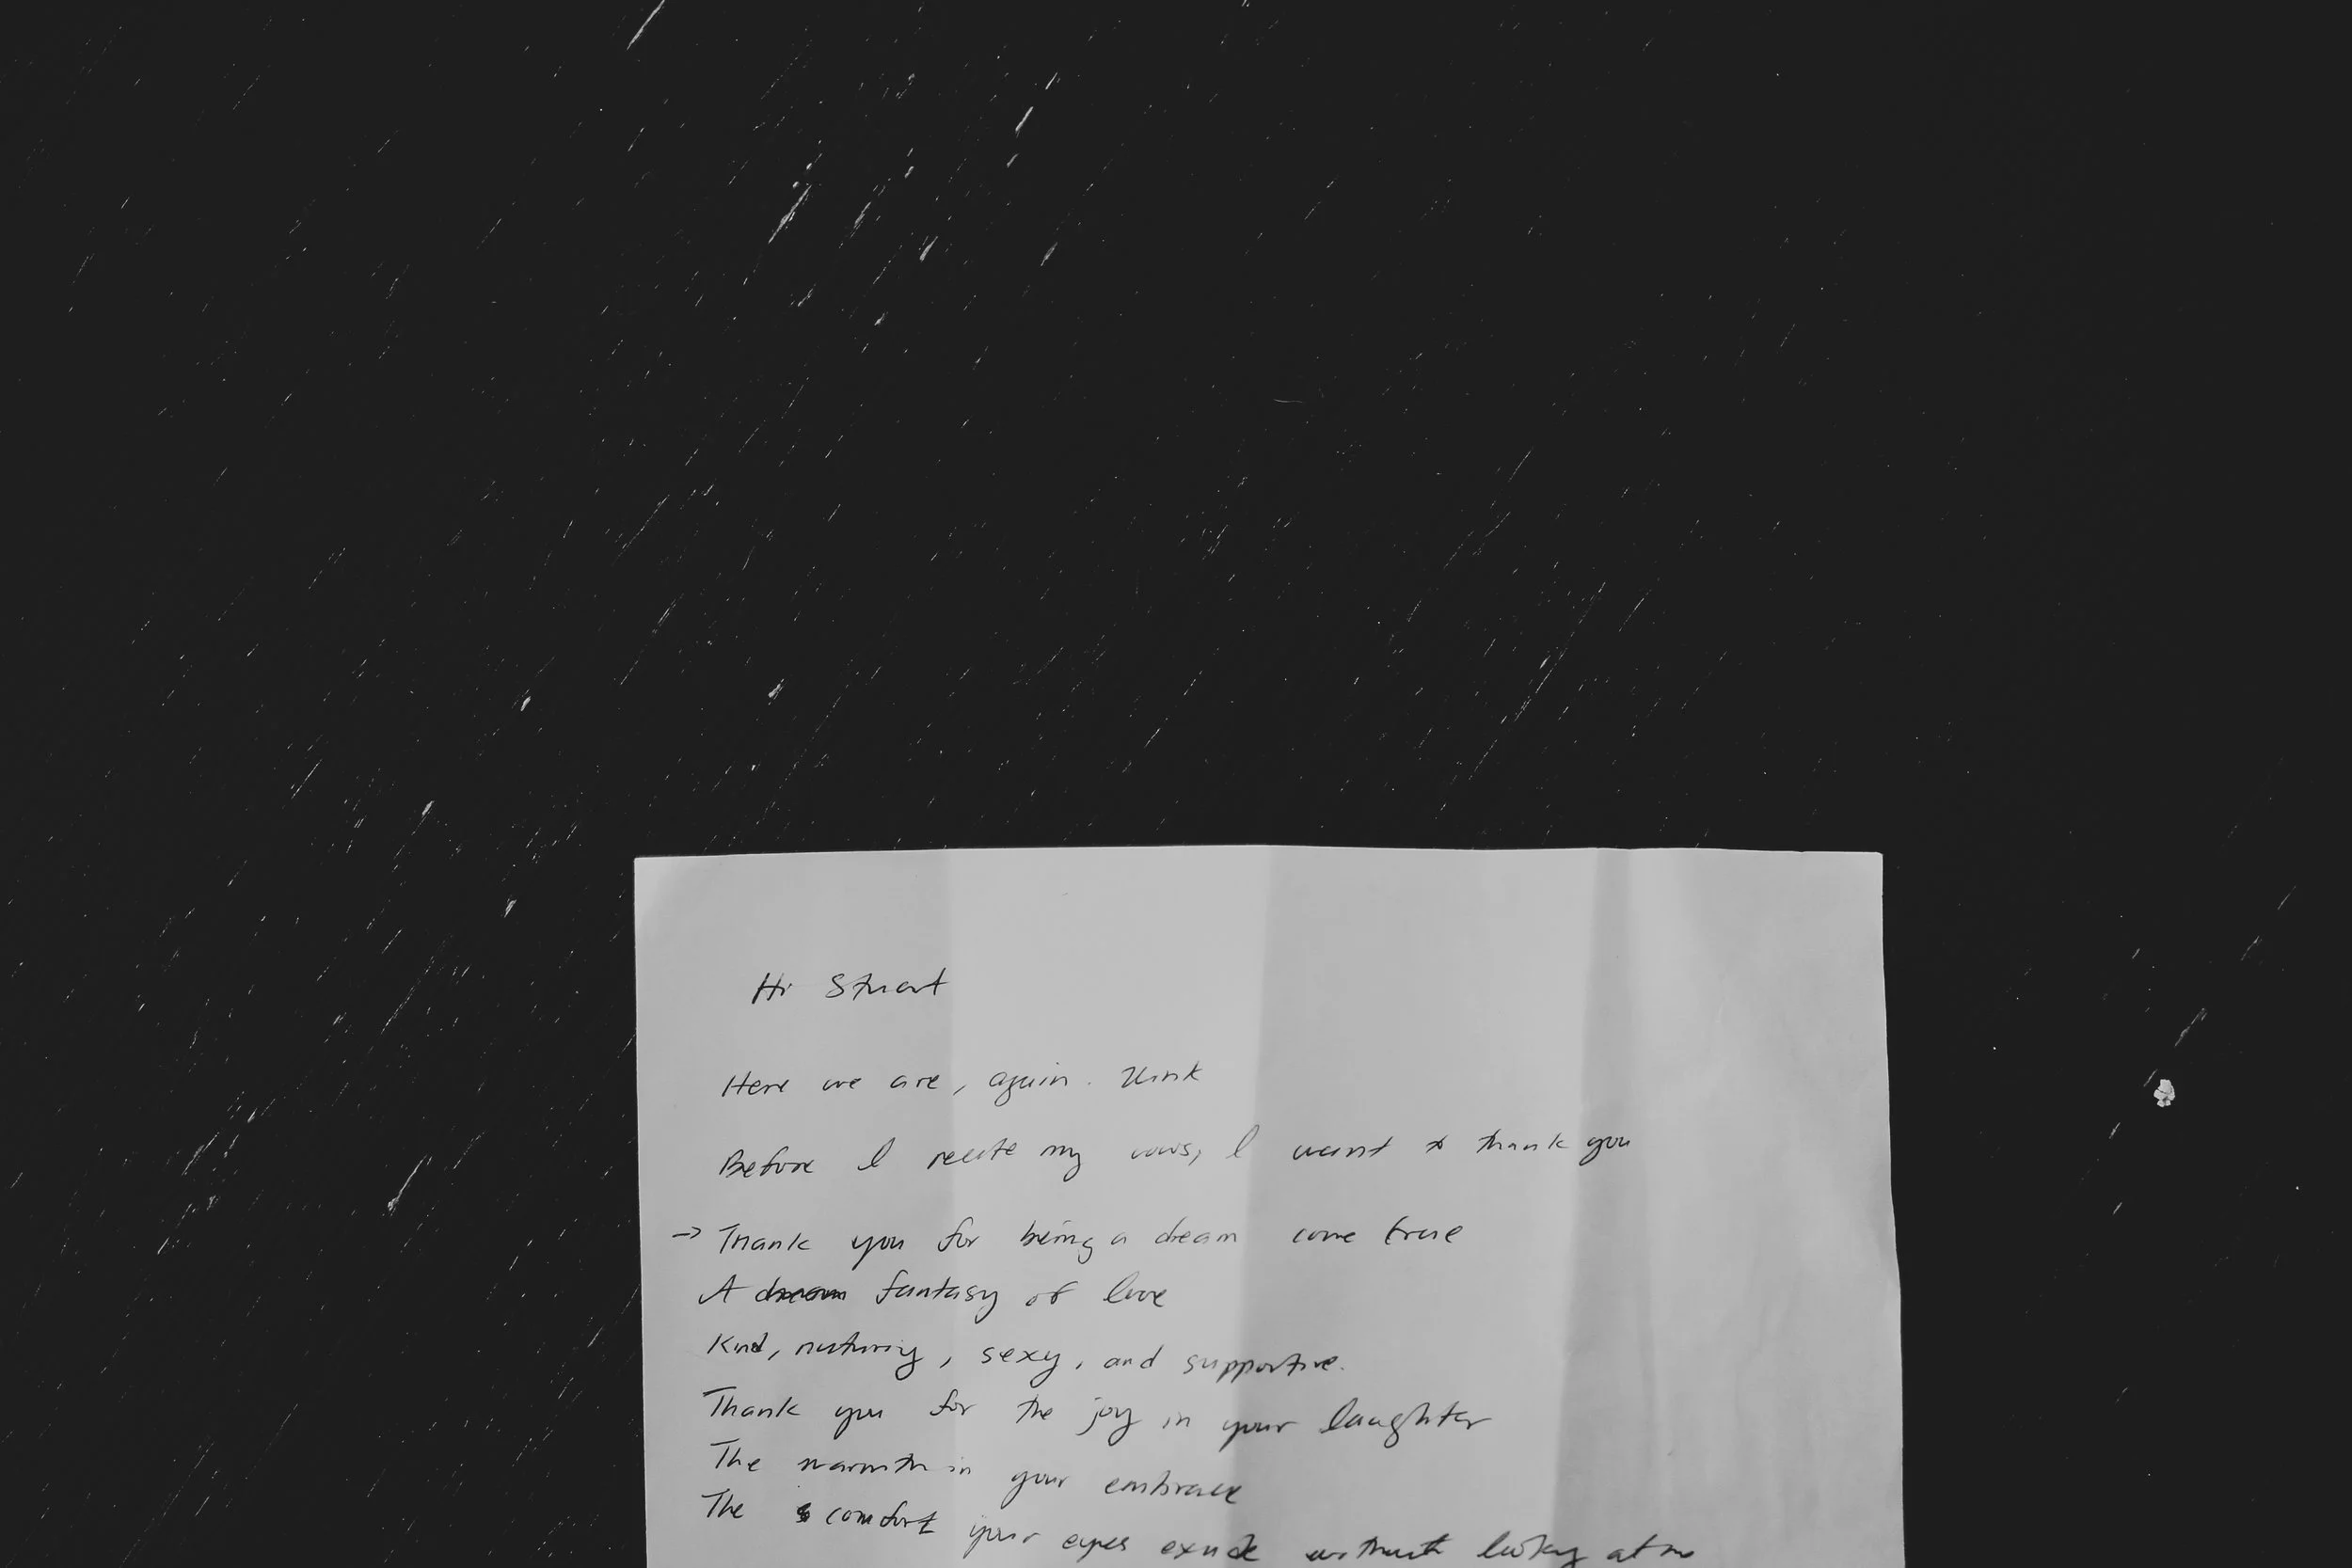 Hi Stuart
Here we are, again. Wink
Before I recite my vows, I want to thank you
→ Thank you for being a dream come true
A fantasy of love
Kind, nurturing, sexy, and supportive.
Thank you for the joy in your laughter
The warmth in your embrace
The comfort your eyes exude without looking at me